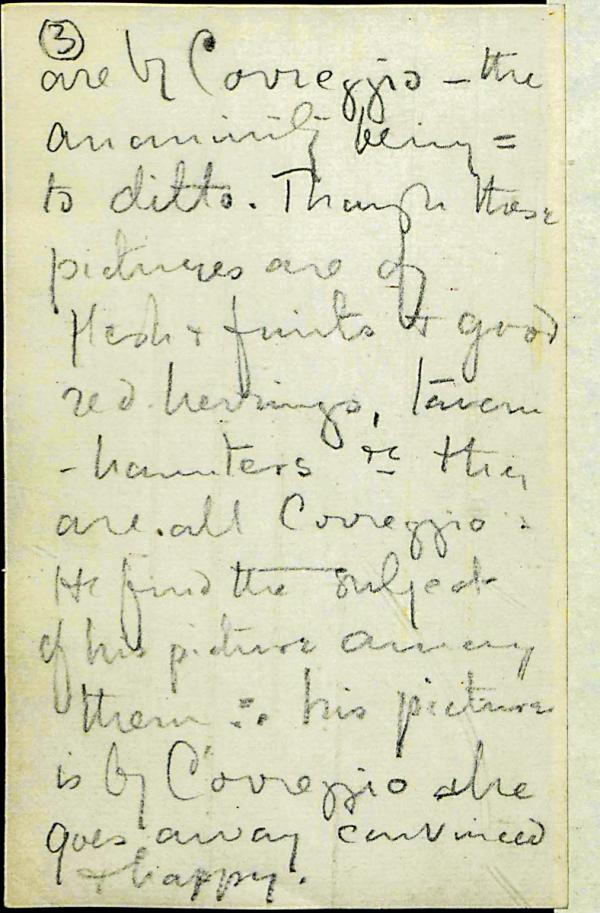 ③
are by Correggio – the
anonimity being =
to ditto. Though these
pictures are of
flesh & fruits & good
red herrings, tavern
-haunters &c they
are all Correggio :
He find the subject
of his picture among
them ∴ his picture
is by Correggio & he
goes away convinced
& happy.